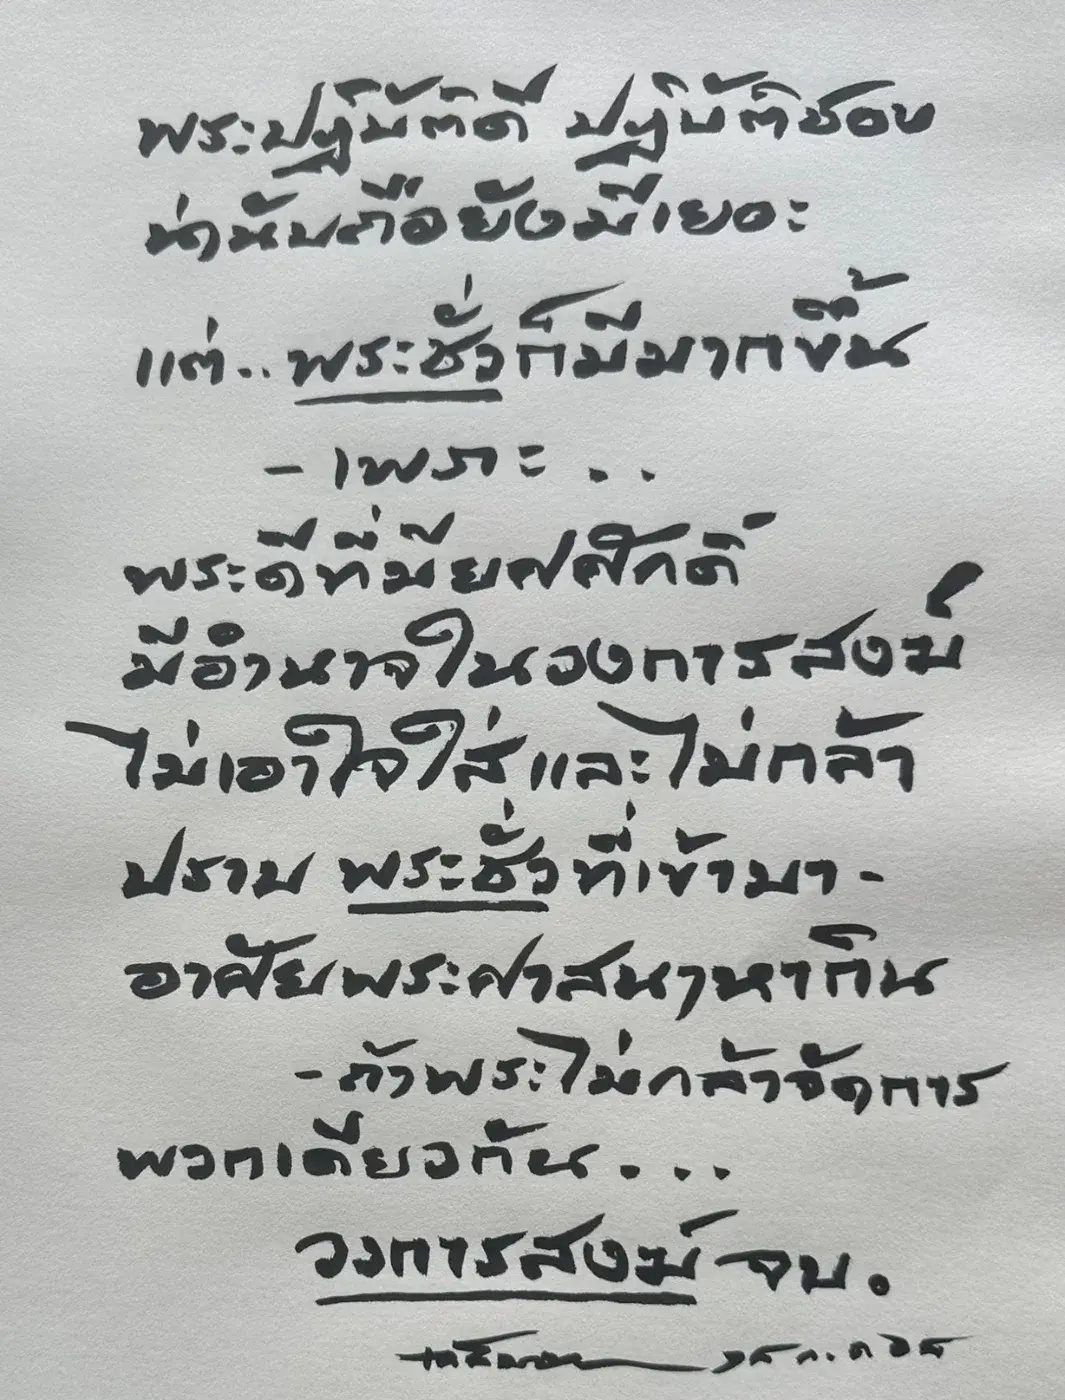 พระปฏิบัติดี ปฏิบัติชอบ
น่านับถือยังมีเยอะ
แต่..พระชั่วก็มีมากขึ้น
- เพราะ ..
พระดีที่มียศศักดิ์
มีอำนาจในวงการสงฆ์
ไม่เอาใจใส่และไม่กล้า
ปราบ พระชั่วที่เข้ามา -
อาศัยพระศาสนาหากิน
- ถ้าพระไม่กล้าจัดการ
พวกเดียวกัน ...
วงการสงฆ์ จบ.